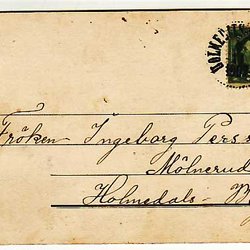 HOLMED
Fröken Ingeborg Perss
Mölnerud
Holmedals